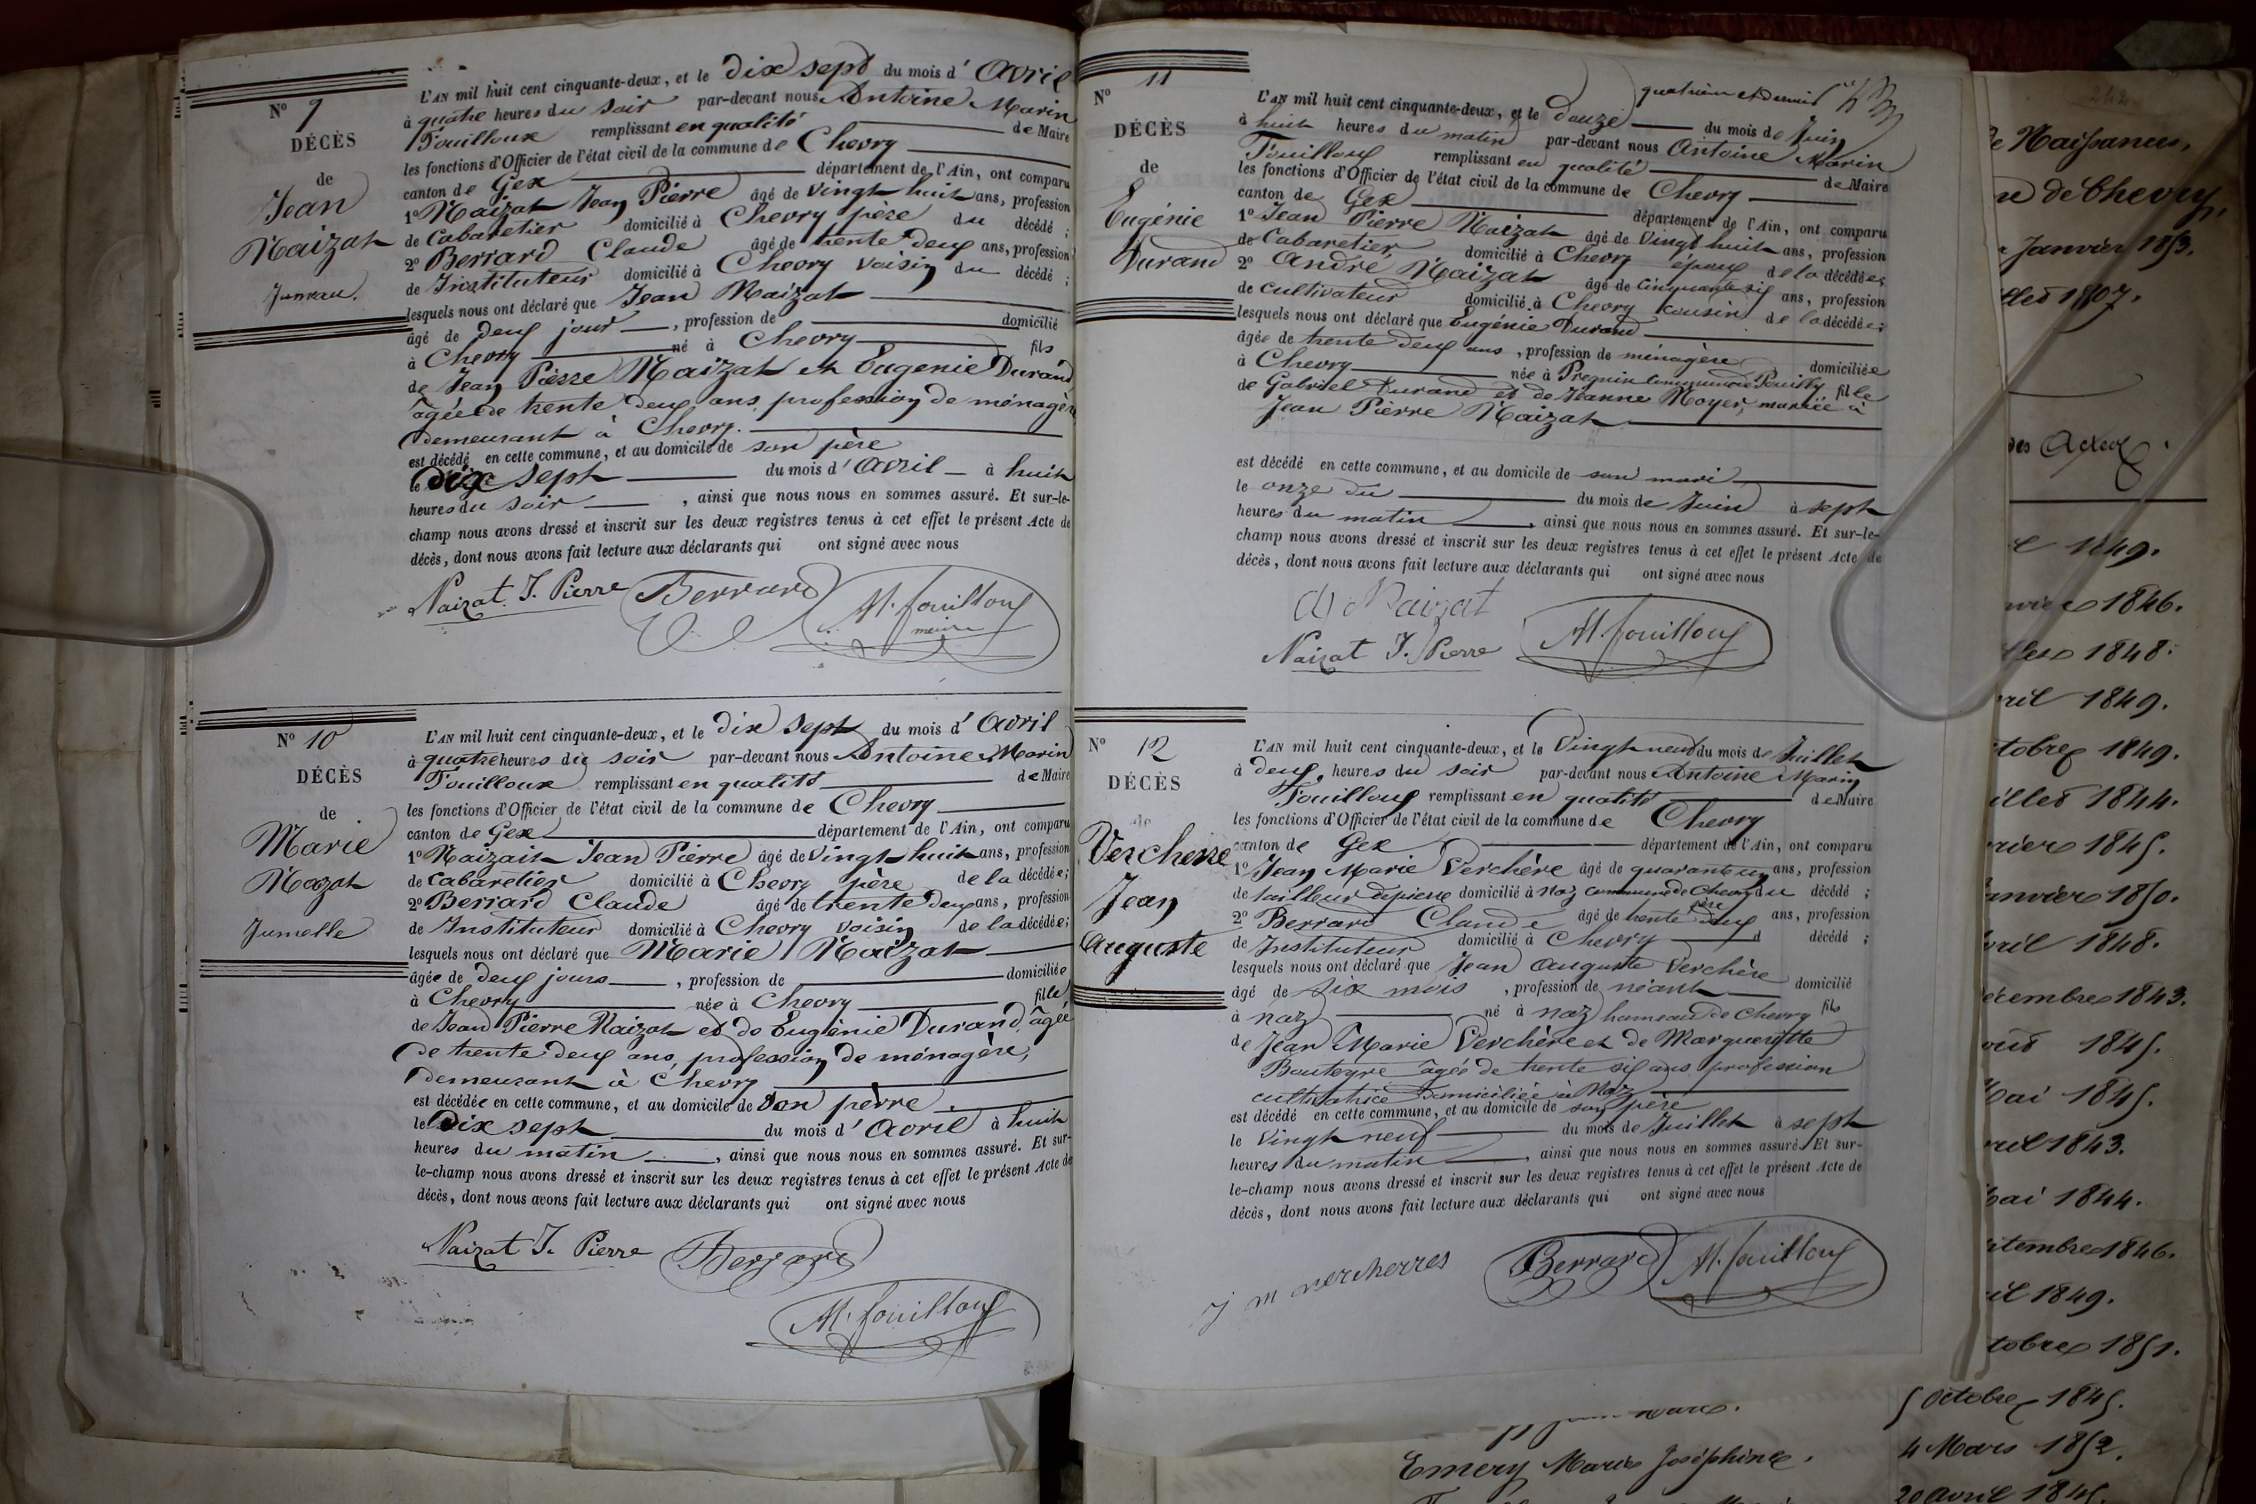 No 9
DÉCÈS
de
Jean
Maizat
Jumeau.
L'AN mil huit cent cinquante-deux, et le dix sept du mois d'Avril
à quatre heures du soir par-devant nous Antoine Marin
Fouilloux remplissant en qualité de Maire
les fonctions d'Officier de l'état civil de la commune de Chevry
canton de Gex département de l'Ain, ont comparu
1o Maizat Jean Pierre âgé de vingt huit ans, profession
de Cabaretier domicilié à Chevry père du décédé ;
2o Berrard Claude âgé de trente deux ans, profession
de Instituteur domicilié à Chevry voisin du décédé ;
lesquels nous ont déclaré que Jean Maizat
âgé de deux jour, profession de domicilié
à Chevry né à Chevry fils
de Jean Pierre Maizat et Eugenie Durand
âgée de trente deux ans profession de ménagère
demeurant à Chevry.
est décédé en cette commune, et au domicile de son père
le dix sept du mois d'Avril à huit
heures du soir, ainsi que nous nous en sommes assuré. Et sur-le-
champ nous avons dressé et inscrit sur les deux registres tenus à cet effet le présent Acte de
décès, dont nous avons fait lecture aux déclarants qui ont signé avec nous
Naizat J. Pierre Berrard M. fouilloux
maire
No 10
DÉCÈS
de
Marie
Mazat
Jumelle
L'AN mil huit cent cinquante-deux, et le dix sept du mois d'Avril
à quatre heures du soir par-devant nous Antoine Marin
Fouilloux remplissant en qualité de Maire
les fonctions d'Officier de l'état civil de la commune de Chevry
canton de Gex département de l'Ain, ont comparu
1o Maizait Jean Pierre âgé de vingt huit ans, profession
de Cabaretier domicilié à Chevry père de la décédée ;
2o Berrard Claude âgé de trente deux ans, profession
de Instituteur domicilié à Chevry voisin de la décédée ;
lesquels nous ont déclaré que Marie Maizat
âgée de deux jours, profession de domiciliée
à Chevry née à Chevry fille
de Jean Pierre Naizat et de Eugènie Durand âgée
de trente deux ans, profession de ménagère,
demeurant à Chevry
est décédée en cette commune, et au domicile de son pèrre.
le Dix sept du mois d'Avril à huit
heures du matin, ainsi que nous nous en sommes assuré. Et sur-
le-champ nous avons dressé et inscrit sur les deux registres tenus à cet effet le présent Acte de
décès, dont nous avons fait lecture aux déclarants qui ont signé avec nous
Naizat J. Pierre Berrard
M. fouilloux
No 11
DÉCÈS
de
Eugénie
Durand
quatrième et dernier
L'AN mil huit cent cinquante-deux, et le douze du mois de Juin
à huit heures du matin par-devant nous Antoine Marin
Fouilloux remplissant en qualité de Maire
les fonctions d'Officier de l'état civil de la commune de Chevry
canton de Gex département de l'Ain, ont comparu
1o Jean Pierre Maizat âgé de vingt huit ans, profession
de Cabaretier domicilié à Chevry époux de la décédée ;
2o André Maizat âgé de cinquante six ans, profession
de cultivateur domicilié à Chevry cousin de la décédée ;
lesquels nous ont déclaré que Eugénie Durand
âgée de trente deux ans, profession de ménagère domiciliée
à Chevry née à Pregnin Commune de Pouilly fille
de Gabriel Durand et de Jeanne Moyer, mariée à
Jean Pierre Maizat
est décédé en cette commune, et au domicile de son mari
le onze du du mois de Juin à sept
heures du matin, ainsi que nous nous en sommes assuré. Et sur-le-
champ nous avons dressé et inscrit sur les deux registres tenus à cet effet le présent Acte de
décès, dont nous avons fait lecture aux déclarants qui ont signé avec nous
Naizat J. Pierre M. fouilloux
No 12
DÉCÈS
de
Verchere
Jean
Auguste
L'AN mil huit cent cinquante-deux, et le vingt neuf du mois de Juillet
à deux heures du soir par-devant nous Antoine Marin
Fouilloux remplissant en qualité de Maire
les fonctions d'Officier de l'état civil de la commune de Chevry
canton de Gex département de l'Ain, ont comparu
1o Jean Marie Verchère âgé de quarante un ans, profession
de tailleur de pierre domicilié à Naz commune de Chevry du décédé ;
père
2o Berrard Claude âgé de trente deux ans, profession
de Instituteur domicilié à Chevry d décédé ;
lesquels nous ont déclaré que Jean Auguste Verchère
âgé de six mois, profession de néant domicilié
à Naz né à Naz hameau de Chevry fils
de Jean Marie Verchère et de Marguerite
Bouteyre âgée de trente six ans profession
cultivatrice domiciliée à Naz
est décédé en cette commune, et au domicile de son père
le vingt neuf du mois de Juillet à sept
heures du matin, ainsi que nous nous en sommes assuré. Et sur-
le-champ nous avons dressé et inscrit sur les deux registres tenus à cet effet le présent Acte de
décès, dont nous avons fait lecture aux déclarants qui ont signé avec nous
j m vercherres Berrard M. fouilloux
de Naissances,
de Chevry,
Janvier 1853.
des Actes
1849.
1846.
1848.
1849.
1849.
1844.
1845.
1850.
1848.
1843.
1845.
1845.
1843.
1844.
1846.
1849.
1851.
5 Octobre 1845.
Emery Marie Joséphine. 4 Mars 1852.
20 avril 1845